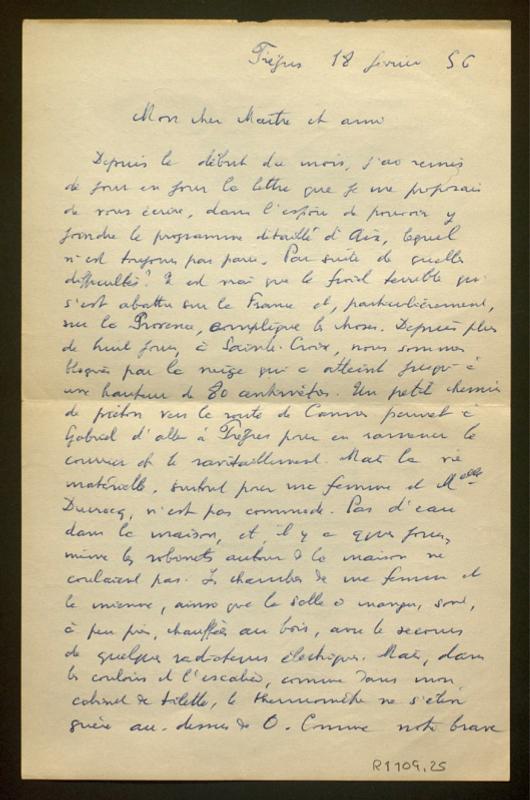 18 février 56
Mon cher Maître et ami
Depuis le début du mois, j'ai remis
de jour en jour la lettre que je me proposais
de vous écrire, dans l'espoir de pouvoir y
joindre le programme détaillé d'Aix, lequel
n'est toujours pas paru. Par suite de quelles
difficultés? Il est vrai que le froid terrible qui
s'est abattu sur la France et, particulièrement,
sur la Provence, complique les choses. Depuis plus
de huit jours, à Sainte-Croix, nous sommes
bloqués par la neige qui a atteint jusqu'à
une hauteur de 80 centimètres. Un petit chemin
de piéton vers la route de Cannes permet à
Gabriel d'aller à Fréjus pour en ramener le
courrier et le ravitaillement. Mais la vie
matérielle, surtout pour ma femme et Melle
Ducrocq, n'est pas commode. Pas d'eau
dans la maison, et, il y a qques jours,
même les robinets autour de la maison ne
coulaient pas. Les chambres de ma femme et
la mienne, ainsi que la salle à manger, sont,
à peu près, chauffées au bois, avec le secours
de quelques radiateurs électriques. Mais, dans
les couloirs et l'escalier, comme dans mon
cabinet de toilette, le thermomètre ne s'élève
guère au-dessus de 0. Comme notre brave
R1109.25